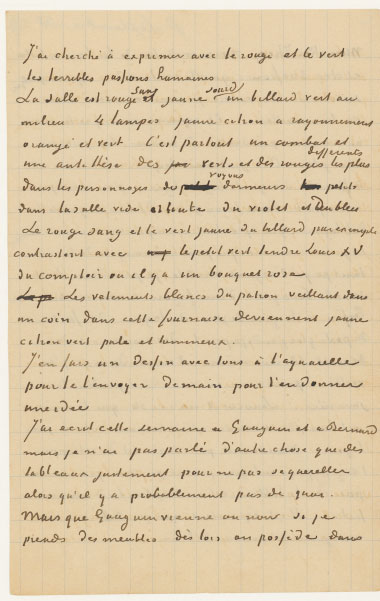 J'ai cherché à exprimer avec le rouge et le vert
les terribles passions humaines
La salle est rouge sang et jaune sourd un billard vert au
milieu 4 lampes jaune citron a rayonnement
orangé et vert C'est partout un combat et
une antithèse des verts et des rouges les plus différents
dans les personnages de voyous dormeurs petits
dans la salle vide et haute du violet et du bleu
Le rouge sang et le vert jaune du billard par exemple
contrastent avec le petit vert tendre Louis XV
du comptoir où il y a un bouquet rose
Les vêtements blancs du patron veillant dans
un coin dans cette fournaise deviennent jaune
citron vert pale et lumineux.
J'en fais un dessin avec tons à l'aquarelle
pour te l'envoyer demain pour t'en donner
une idée
J'ai ecrit cette semaine a Gauguin et a Bernard
mais je n'ai pas parlé d'autre chose que des
tableaux justement pour ne pas se quereller
alors qu'il y a probablement pas de quoi.
Mais que Gauguin vienne ou non si je
prends des meubles dès lors on possède dans